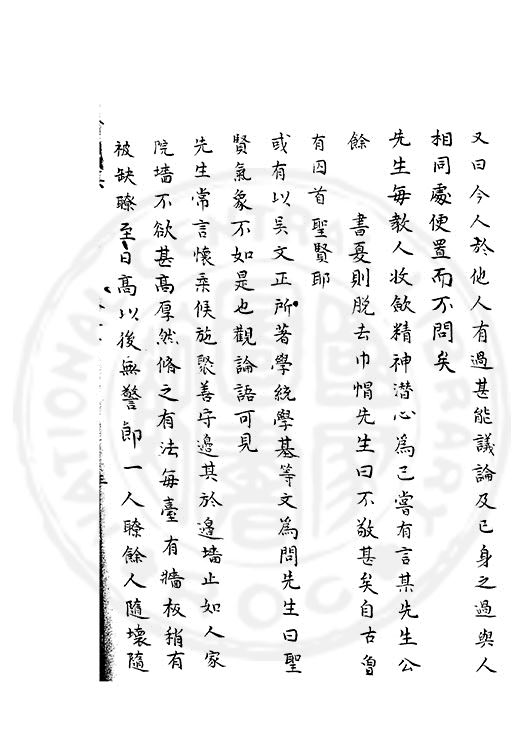 又曰今人於他人有過甚能議論及己身之過與人
相同處便置而不問矣
先生每教人收斂精神潛心為己嘗有言某先生公
餘　　書夏則脫去巾帽先生曰不敬甚矣自古曾
有囚首聖賢耶
或有以吳文正所著學統學基等文為問先生曰聖
賢氣象不如是也觀論語可見
先生常言懷柔候施聚善守邊其於邊墻止如人家
院墻不欲甚高厚然脩之有法每臺有牆板稍有
被缺瞭至日高以後無警郎一人瞭餘人隨壞隨